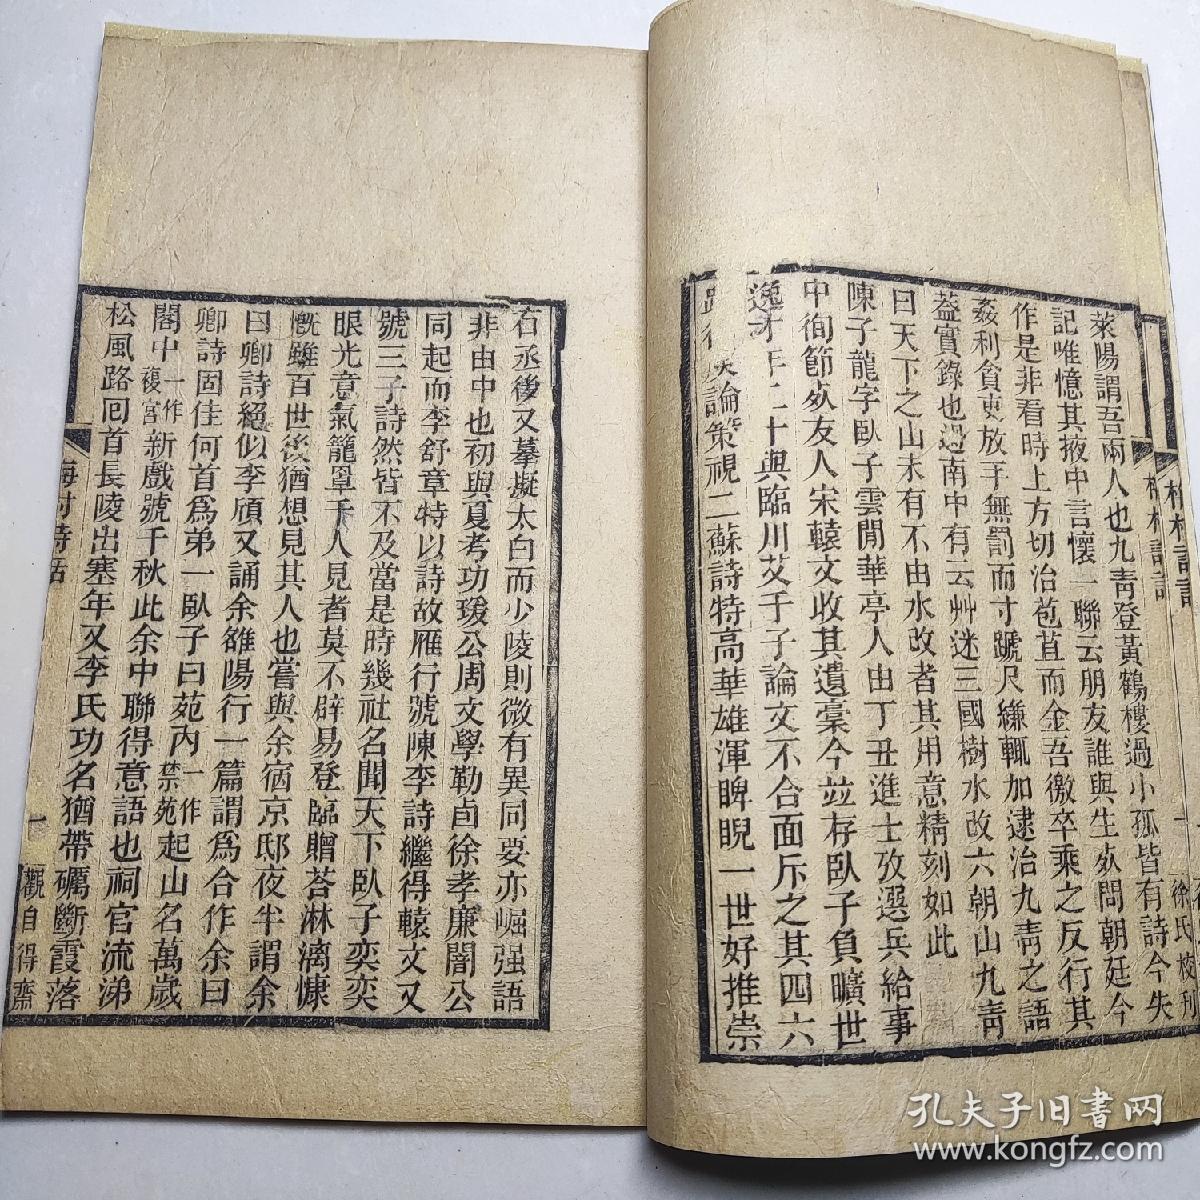 萊陽謂吾兩人也九靑登黃鶴樓過小孤皆有詩今失
記唯憶其掖中言懷一聯云朋友誰與生死問朝廷今
作是非看時上方切治苞苴而金吾徼卒乘之反行其
姦利貪吏放手無罰而寸蹏尺縑輒加逮治九靑之語
葢實錄也過南中有云艸迷三國樹水改六朝山九靑
曰天下之山未有不由水改者其用意精刻如此
陳子龍字臥子雲閒華亭人由丁丑進士攷選兵給事
中徇節死友人宋轅文收其遺稾今竝存臥子負曠世
逸才年二十與臨川艾千子論文不合面斥之其四六
論策視二蘇詩特高華雄渾睥睨一世好推崇
右丞後又摹擬太白而少陵則微有異同要亦崛强語
非由中也初與夏考功瑗公周文學勒卣徐孝廉闇公
同起而李舒章特以詩故雁行號陳李詩繼得轅文又
號三子詩然皆不及當是時幾社名聞天下臥子奕奕
眼光意氣籠罩千人見者莫不辟易登臨贈荅淋漓慷
慨雖百世後猶想見其人也嘗與余宿京邸夜半謂余
曰卿詩絕似李頎又誦余雒陽行一篇謂爲合作余曰
卿詩固佳何首爲弟一臥子曰苑內一作禁苑起山名萬歲
閣中一作複宮新戲號千秋此余中聯得意語也祠官流涕
松風路回首長陵出塞年又李氏功名猶帶礪斷霞落
梅村詩話
一
觀自得齋
徐氏校刊
孔夫子旧書网
www.kongfz.com